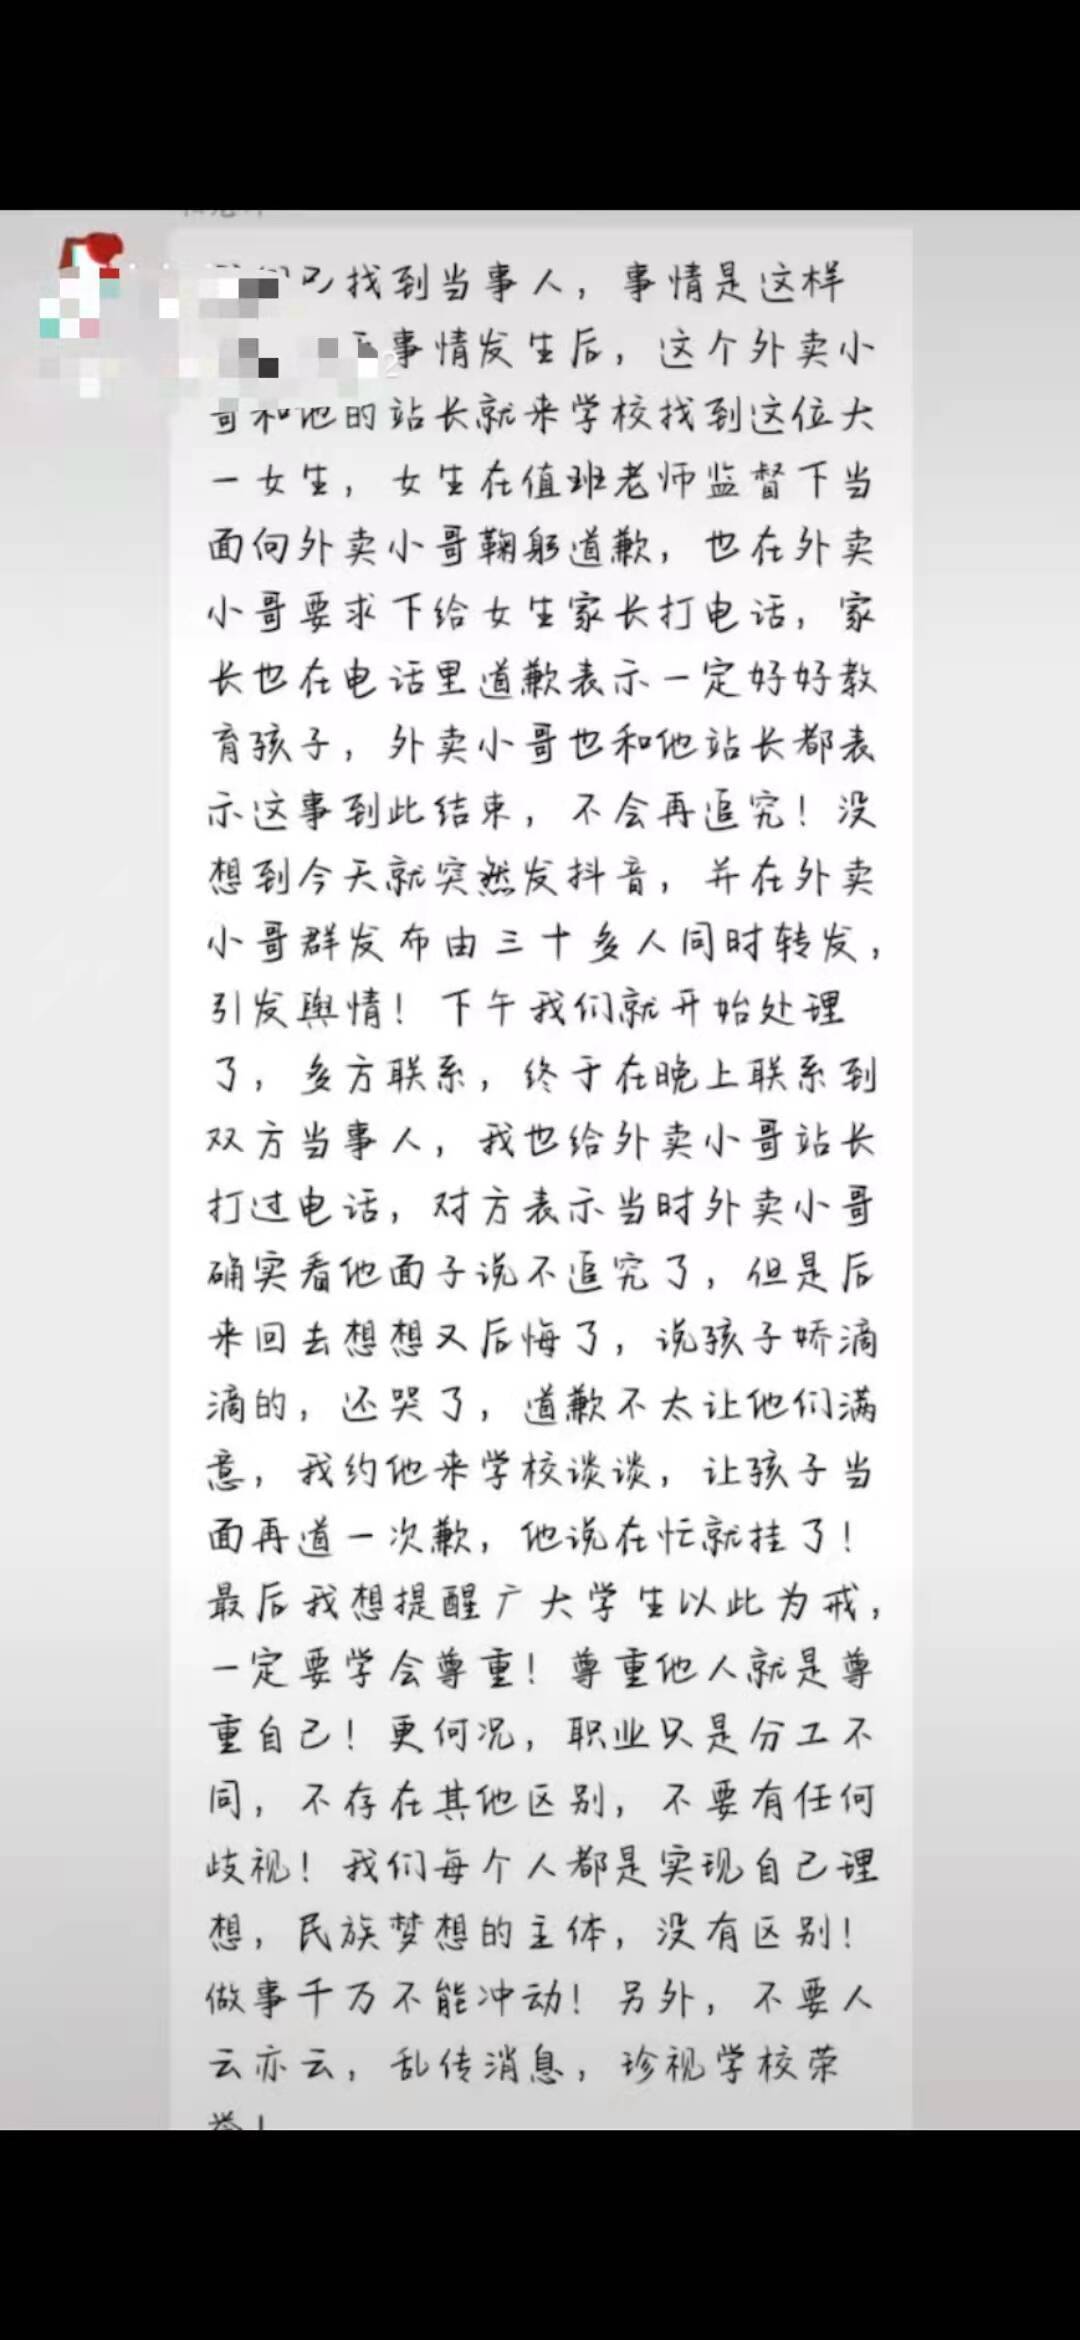 找到当事人，事情是这样
事情发生后，这个外卖小
哥和他的站长就来学校找到这位大
一女生，女生在值班老师监督下当
面向外卖小哥鞠躬道歉，也在外卖
小哥要求下给女生家长打电话，家
长也在电话里道歉表示一定好好教
育孩子，外卖小哥也和他站长都表
示这事到此结束，不会再追究！没
想到今天就突然发抖音，并在外卖
小哥群发布由三十多人同时转发，
引发舆情！下午我们就开始处理
了，多方联系，终于在晚上联系到
双方当事人，我也给外卖小哥站长
打过电话，对方表示当时外卖小哥
确实看他面子说不追究了，但是后
来回去想想又后悔了，说孩子娇滴
滴的，还哭了，道歉不太让他们满
意，我约他来学校谈谈，让孩子当
面再道一次歉，他说在忙就挂了！
最后我想提醒广大学生以此为戒，
一定要学会尊重！尊重他人就是尊
重自己！更何况，职业只是分工不
同，不存在其他区别，不要有任何
歧视！我们每个人都是实现自己理
想，民族梦想的主体，没有区别！
做事千万不能冲动！另外，不要人
云亦云，乱传消息，珍视学校荣
誉！